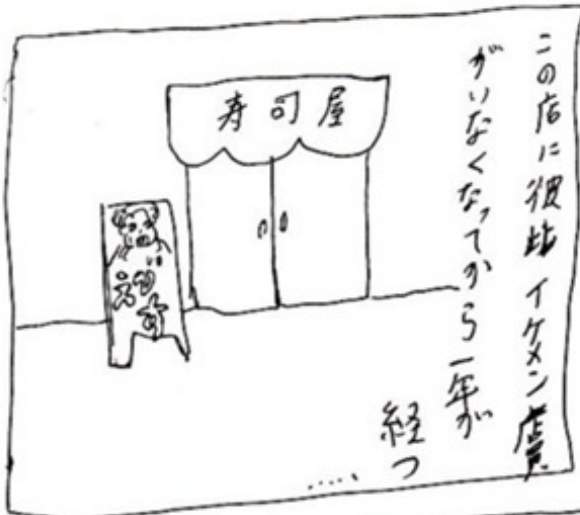 この店に彼此イケメン店員
がいなくなってから一年が
経つ
……
寿司屋